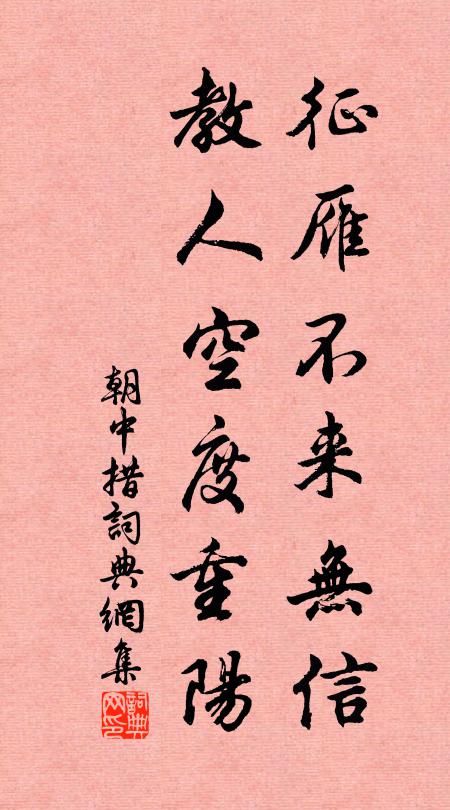 征雁不来無信
教人空度重陽
朝中措詞典網集
詞典網印